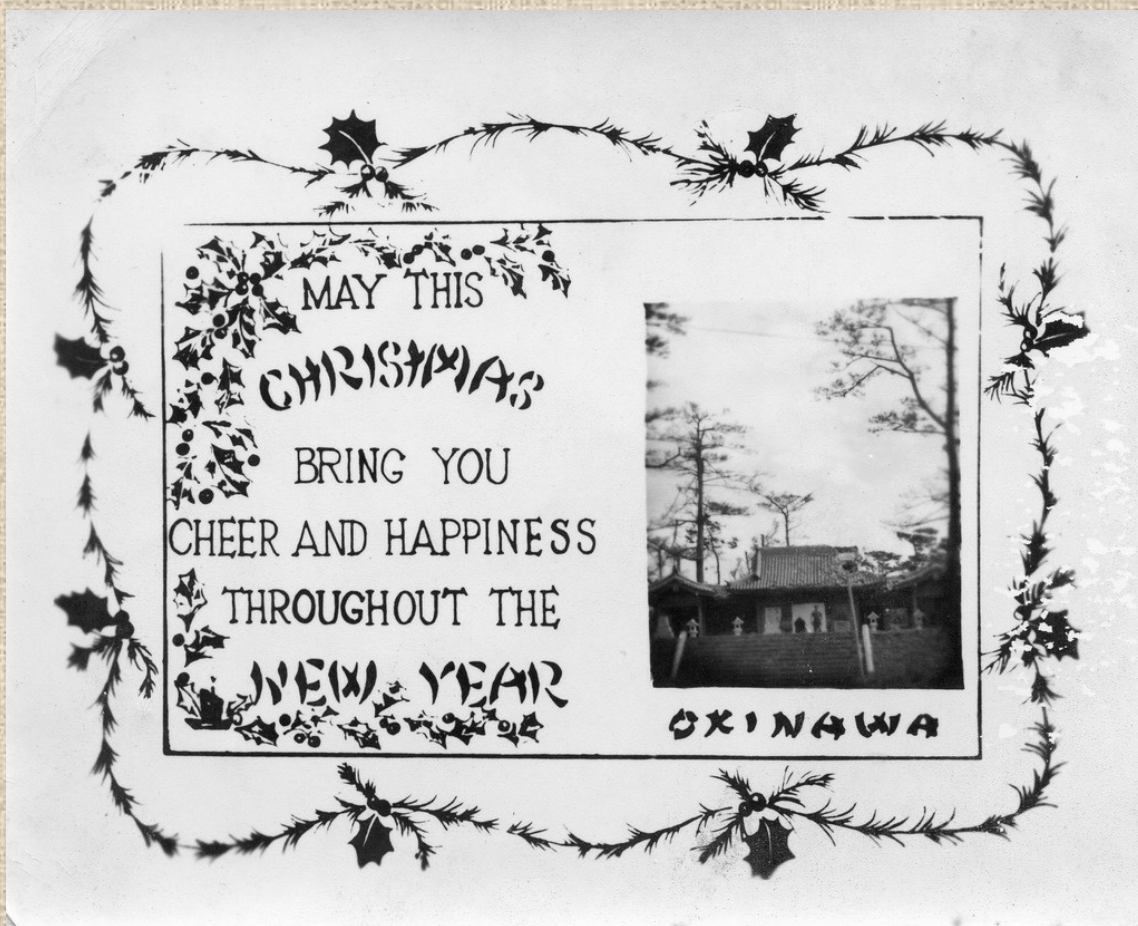 MAY THIS
CHRISTMAS
BRING YOU
CHEER AND HAPPINESS
THROUGHOUT THE
NEW YEAR
OKINAWA